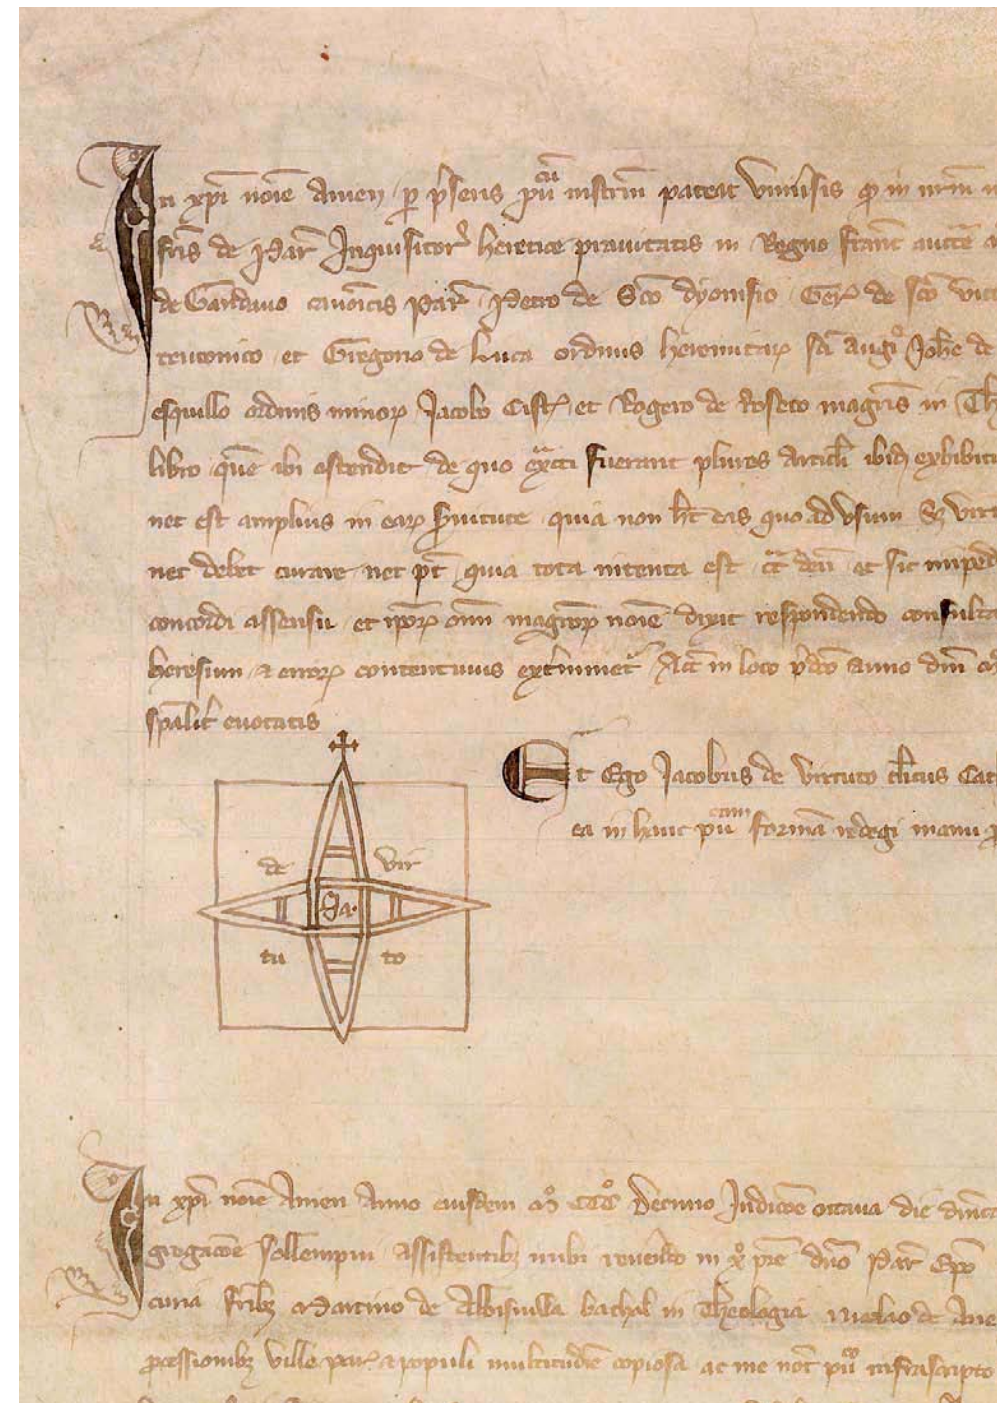 In xpi noie Amen per psens puu cu instrm pateat Vniusis qd in mrm
fris de Par Inquisitor heretice prauitatis in Regno franc auctte
de Gandauo canoicis Par Petro de Sco dyonisio Ger de sco vict
teutonico et Gregorio de Luca ordinis heremitar sci augo Johe de
esquillo ordinis minor Jacobo Cist et Rogero de Roseto magris in Th
libro quem ibi ostendit de quo exacti fuerant plures Articli ibid exhibiti
nec est amplius in ear seruitute quia non ht eas quo ad vsum Sz virt
nec debet curare nec pt quia tota intenta est circa deu et sic imped
concordi assensu et ipor oim magror noie dixit respondendo consulta
heresim et error contentiuus extimet Act in loco pdco anno dni
spalit euocatis
Et Ego Jacobus de virtuto clicus Cat
ea in hanc puu cam formā redegi manu
de vir
Ja.
tu to
In xpi noie Amen Anno eiusdem mo ccco Decimo Indicoe octaua die dnica
gregacoe sollempni assistentibz mihi reuendo in xo pre dno Par Epo
curia fribz Martino de Abbisuilla bachal in Theologia Nicolao de Ane
processionibz ville par et populi multitudie copiosa ac me not puo infrascripto